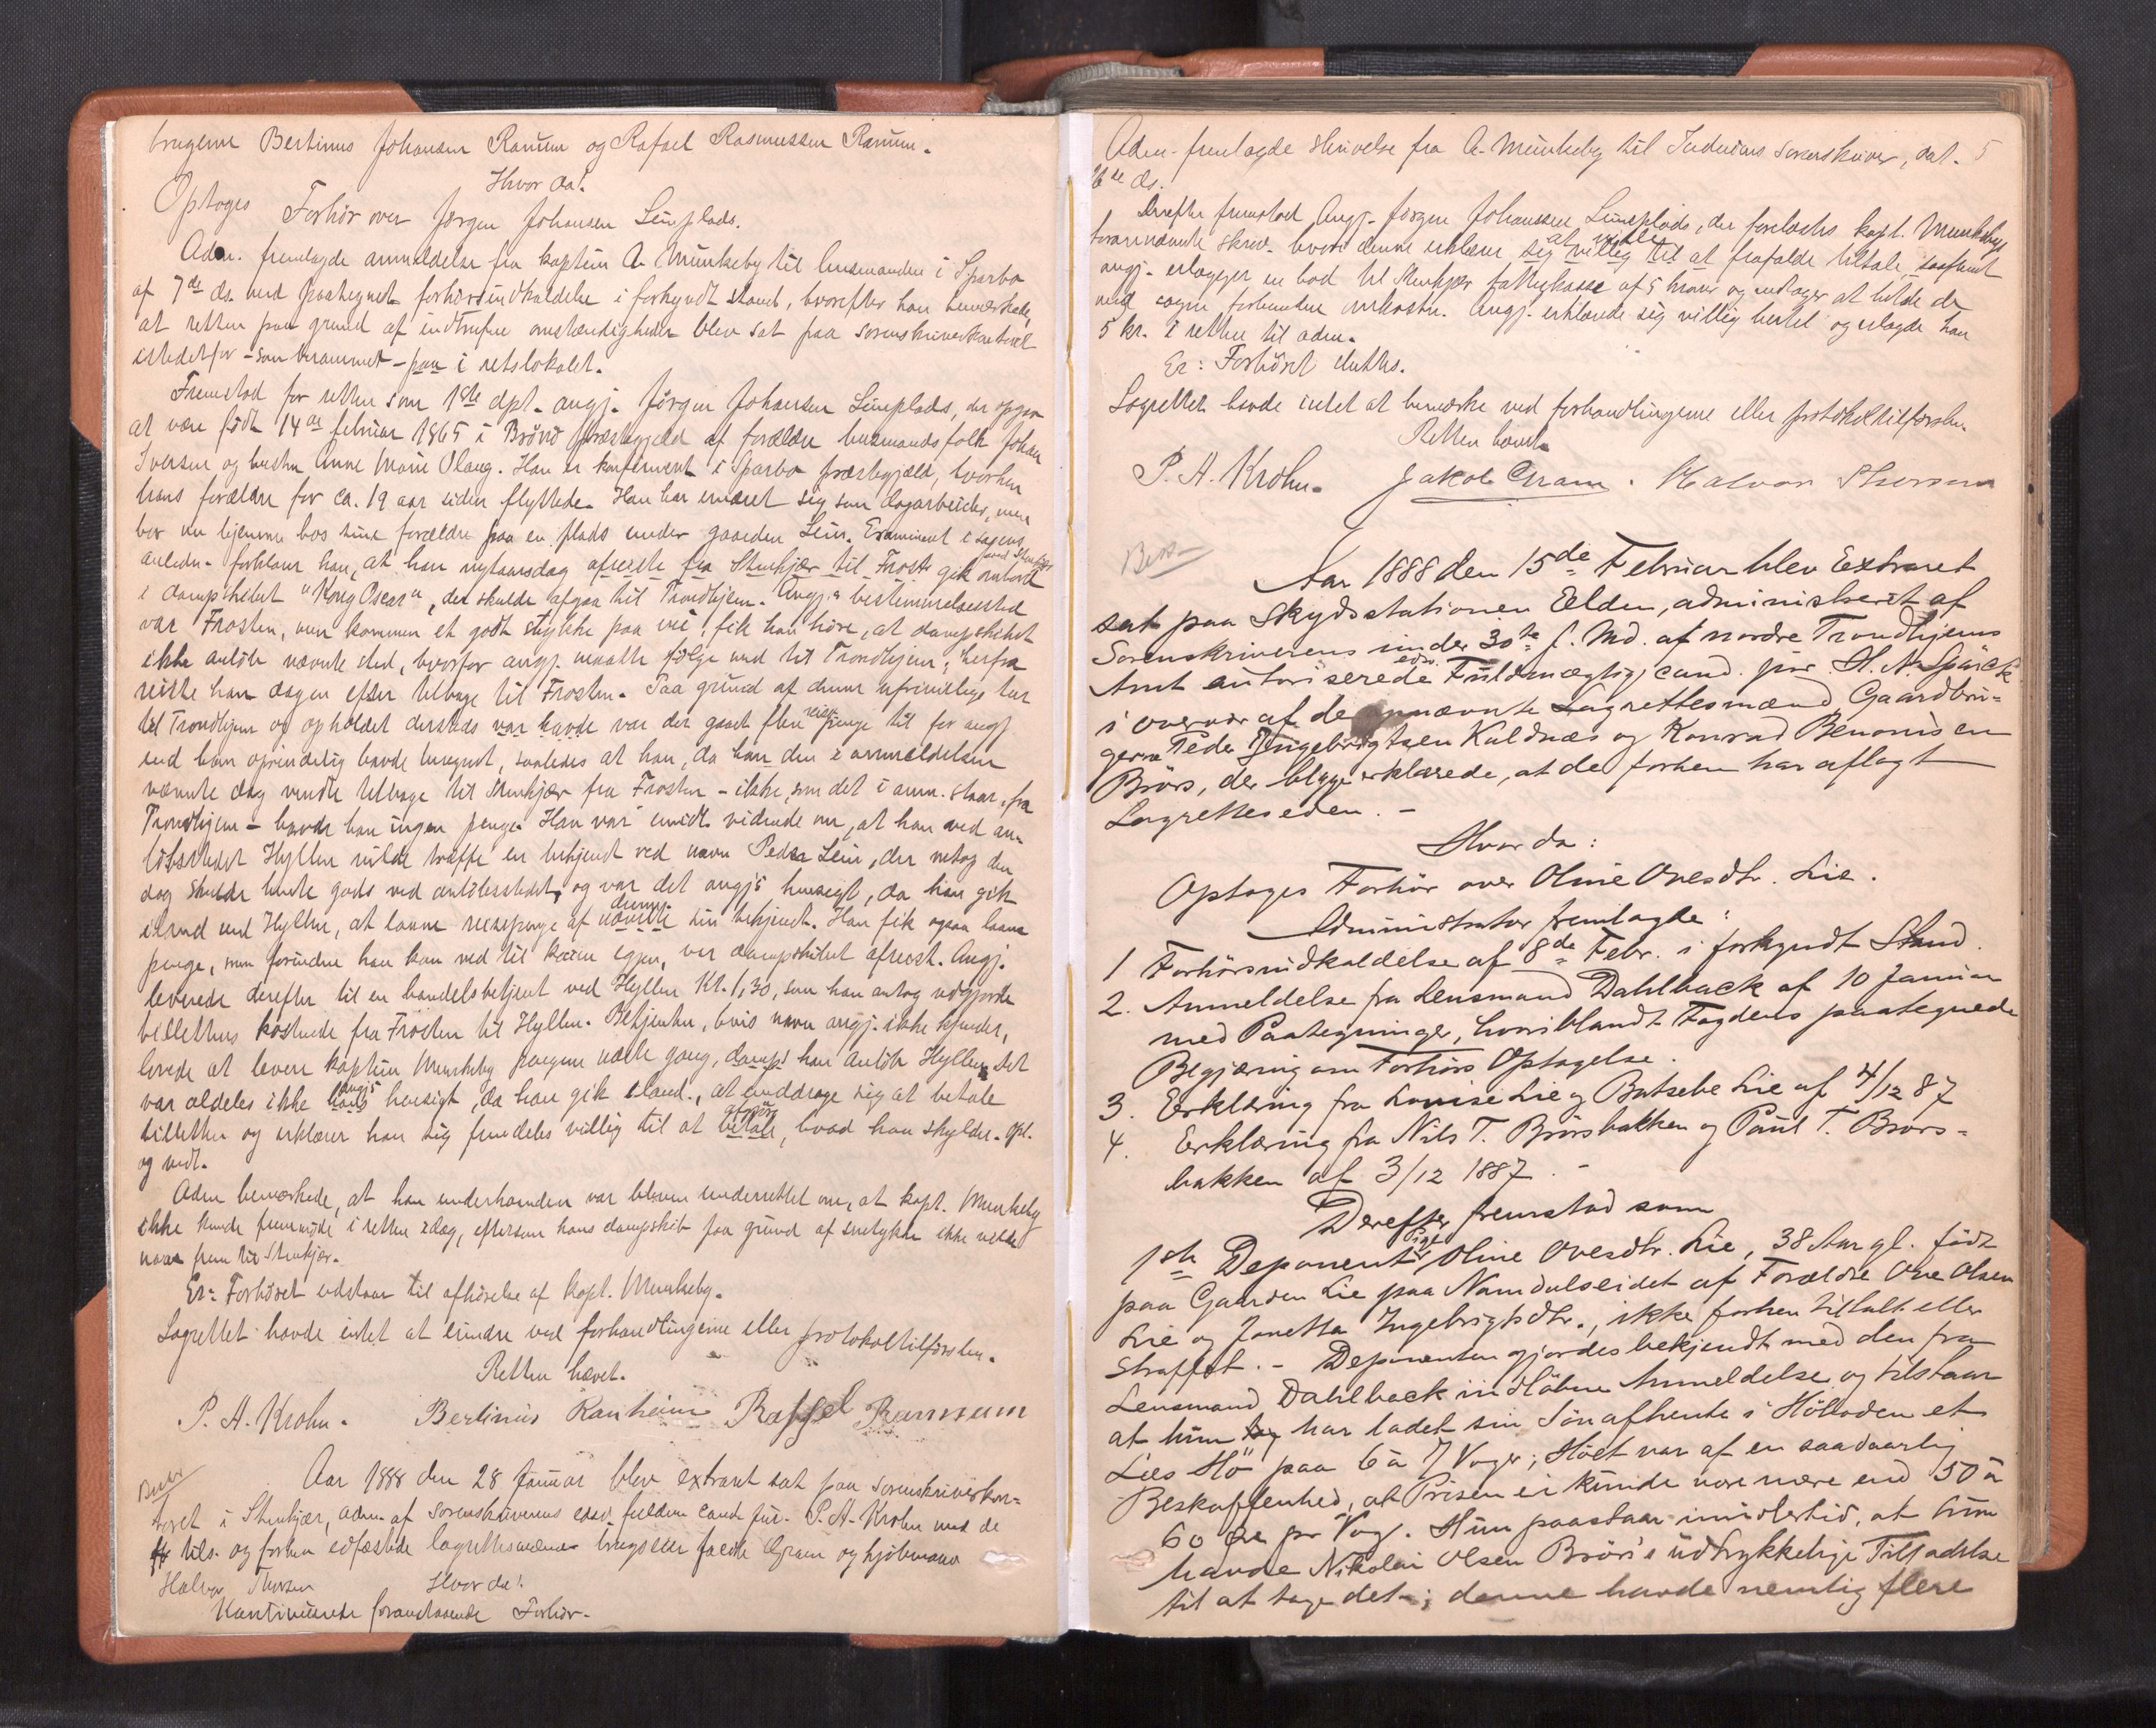 brugerne Bertinus Johansen Ranum og Rafael Rasmussen Ranum.
Hvor da!
Optoges Forhör over Jørgen Johansen Leinplads.
Adm. fremlagde anmeldelse fra kaptein A. Munkeby til lensmanden i Sparbo
af 7de ds. med paategnet forhørsindkaldelse i forkyndt stand, hvorefter han bemærkede,
at retten paa grund af indtrufne omstændigheder blev sat paa sorenskriverkontoret
istedetfor - som berammet - paa i retslokalet.
Fremstod for retten som 1ste dpt. angj. Jörgen Johansen Leinplads, der opgav
at være født 14de februar 1865 i præstegjeld af forældre husmandsfolk Johan
Iversen og hustru Anne Marie Olaug. Han er konfirmeret i Sparbo præstegjæld, hvorhen
hans forældre for ca. 19 aar siden flyttede. Han har ernæret sig som dagarbeider, men
bor nu hjemme hos sine forældre paa en plads under gaarden Lein. Examineret i sagens
anledn. forklarer han, at han nytaarsdag afreiste fra Stenkjær til Frost gik ombord
i dampskibet "Kong Oscar", der skulde afgaa til Trondhjem. Angj.s bestemmelsessted
var Frosten, men kommen et godt stykke paa vei, fik han höre, at dampskibet
ikke anløb nævnte sted, hvorfor angj. maatte følge med til Trondhjem; herfra
reiste han dagen efter tilbage til Frosten. Paa grund af denne ufrivillige tur
til Trondhjem og opholdet dersteds var havde var der gaaet flere reisepenge til for angj.
end han oprindelig havde beregnet, saaledes at han, da han den i anmeldelsen
nævnte dag vendte tilbage til Stenkjær fra Frosten - ikke, som det i anm. staar, fra
Trondhjem - havde han ingen penge. Han var imidl. vidende om, at han ved an-
löbsstedet Hyllen vilde træffe en bekjendt ved navn Peder Lein, der netop den
dag skulde hente gods ved anløbsstedet, og var det angj's hensigt, da han gik
iland ved Hyllen, at laane reisepenge af nævnte denne sin bekjendt. Han fik ogsaa laane
penge, men forinden han kom ned til kaien igjen, var dampskibet afreist. Angj.
leverede derefter til en handelsbetjent ved Hyllen Kr. 1,30, som han antog udgjorde
billettens kostende fra Frosten til Hyllen. Betjenten, hvis navn angj. ikke kjender,
lovede at levere kaptein Munkeby pengene næste gang, damps han anløb Hyllen. Det
var aldeles ikke hans angj's hensigt, da han gik iland, at unddrage sig at betale
billetten og erklærer han sig fremdeles villig til at betale opgjøre, hvad han skylder. Opl.
og vedt.
Adm. bemærkede, at han underhaanden var bleven underrettet om, at kapt. Munkeby
ikke kunde fremmøde i retten idag, eftersom hans dampskib paa grund af
naa frem til Stenkjær.
Er: Forhöret udstaar til afhörelse af kapt. Munkeby.
Lagrettet havde intet at erindre ved forhandlingerne eller protokoltilførslen.
Retten hævet.
P. A. Krohn. Bertinus Ranheim Raffael Rannum
Aar 1888 den 28 Januar blev extraret sat paa sorenskriverkon=
toret i Stenkjær, adm. af sorenskriverens edsv. fuldm. cand. jur. P. A. Krohn med de
tils. og forhen edfæstede lagrettesmænd Gram og kjøbmand
Halvor Thorsen Hvor da!
Kontinuerede foranstaaende Forhör.
5
Adm. fremlagde skrivelse fra A. Munkeby til Inderøens sorenskriver, dat.
26de ds.
Derefter fremstod Angj. Jörgen Johanssen Leinsplads, der forelæstes kapt. Munkebys
forannævnte skriv. hvori denne erklærer sig villig til at ville at frafalde tiltale, saafremt
angj. erlægger en bod til Stenkjær fattigkasse af 5 kroner og vedtager at
med sagen forbundne omkostn. Angj. erklærede sig villig hertil og erlagde han
5 kr. i retten til adm.
Er: Forhöret sluttes.
Lagrettet havde intet at bemærke ved forhandlingerne eller protokoltilførslen.
Retten hævet
P. A. Krohn. Jakob Gram. Halvor Thorsen
Aar 1888 den 15de Februar blev Extraret
sat paa Skydsstationen Eldum, administreret af
Sorenskriverens under 30te f. Md. af nordre Trondhjems
Amt autoriserede edsv. Fuldmægtig cand. jur. H. N. Gjärck
i overvær af de opnævnte Lagrettesmænd Gaardbru-
gerne Peder Ingebrigtsen Kaldnæs og Konrad Benonisen
Brörs, der begge erklærede, at de forhen har aflagt
Lagretteseden. -
Hvor da:
Optoges Forhör over Oline Ovesdtr. Lie.
Administrator fremlagde:
1 Forhörsindkaldelse af 8de Febr. i forkyndt Stand.
2. Anmeldelse fra Lensmand Dahlback af 10 Januar
med Paategninger, hvoriblandt Fogdens paategnede
Begjæring om Forhörs Optagelse.
3. Erklæring fra Louise Lie og Batsebe Lie af 4/12 87
4. Erklæring fra Nils T. Brörsbakken og Paul T. Brörs=
bakken af 3/12 1887. -
Derefter fremstod som
1ste Deponent Pige Oline Ovesdtr. Lie, 38 Aar gl. födt
paa Gaarden Lie paa Namdalseidet af Forældre Ove Olsen
Lie og Jonetta Ingebrigtsdtr., ikke forhen tiltalt eller
straffet. - Deponenten gjordes bekjendt med den fra
Lensmand Dahlback indløbne Anmeldelse og tilstaar
at hun har ladet sin Sön afhente i Höladen et
Læs Hö paa 6 à 7 Voger; Höet var af en saa daarlig
Beskaffenhed, at Prisen ei kunde være mere end 50 à
60 Öre pr Vog. Hun paastaar imidlertid, at hun
havde Nikolai Olsen Brörs's udtrykkelige Tilladelse
til at tage det; denne havde nemlig flere